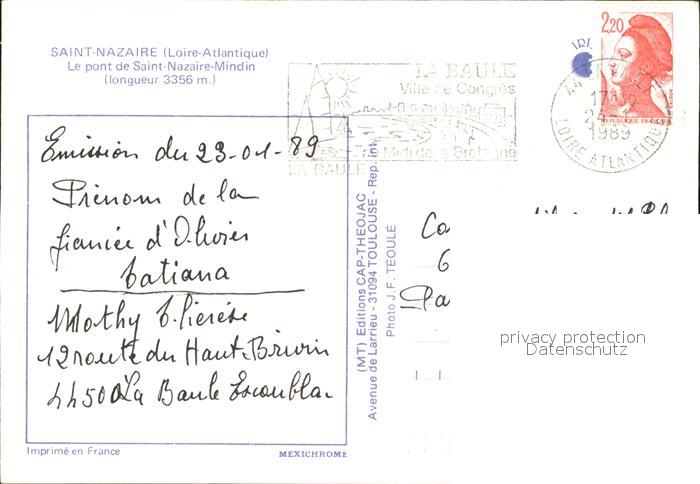 SAINT-NAZAIRE (Loire-Atlantique)
Le pont de Saint-Nazaire-Mindin
(longueur 3356 m.)
LA BAULE
Ville de Congrès
Midi de la Bretagne
LA BAULE
2,20
REPUBLIQUE FRANC
24-1
1989
LOIRE ATLANTIQUE
Emission du 23-01-89
Prénom de la
fiancée d'Olivier
tatiana
Mothy
12 route du Haut-Brivin
44500 La Baule Escoublac
(MT) Editions CAP-THEOJAC
Avenue de Larrieu - 31094 TOULOUSE - Rep. int.
Photo J.F. TÉOULÉ
Ca
6
Pa
privacy protection
Datenschutz
Imprimé en France
MEXICHROME